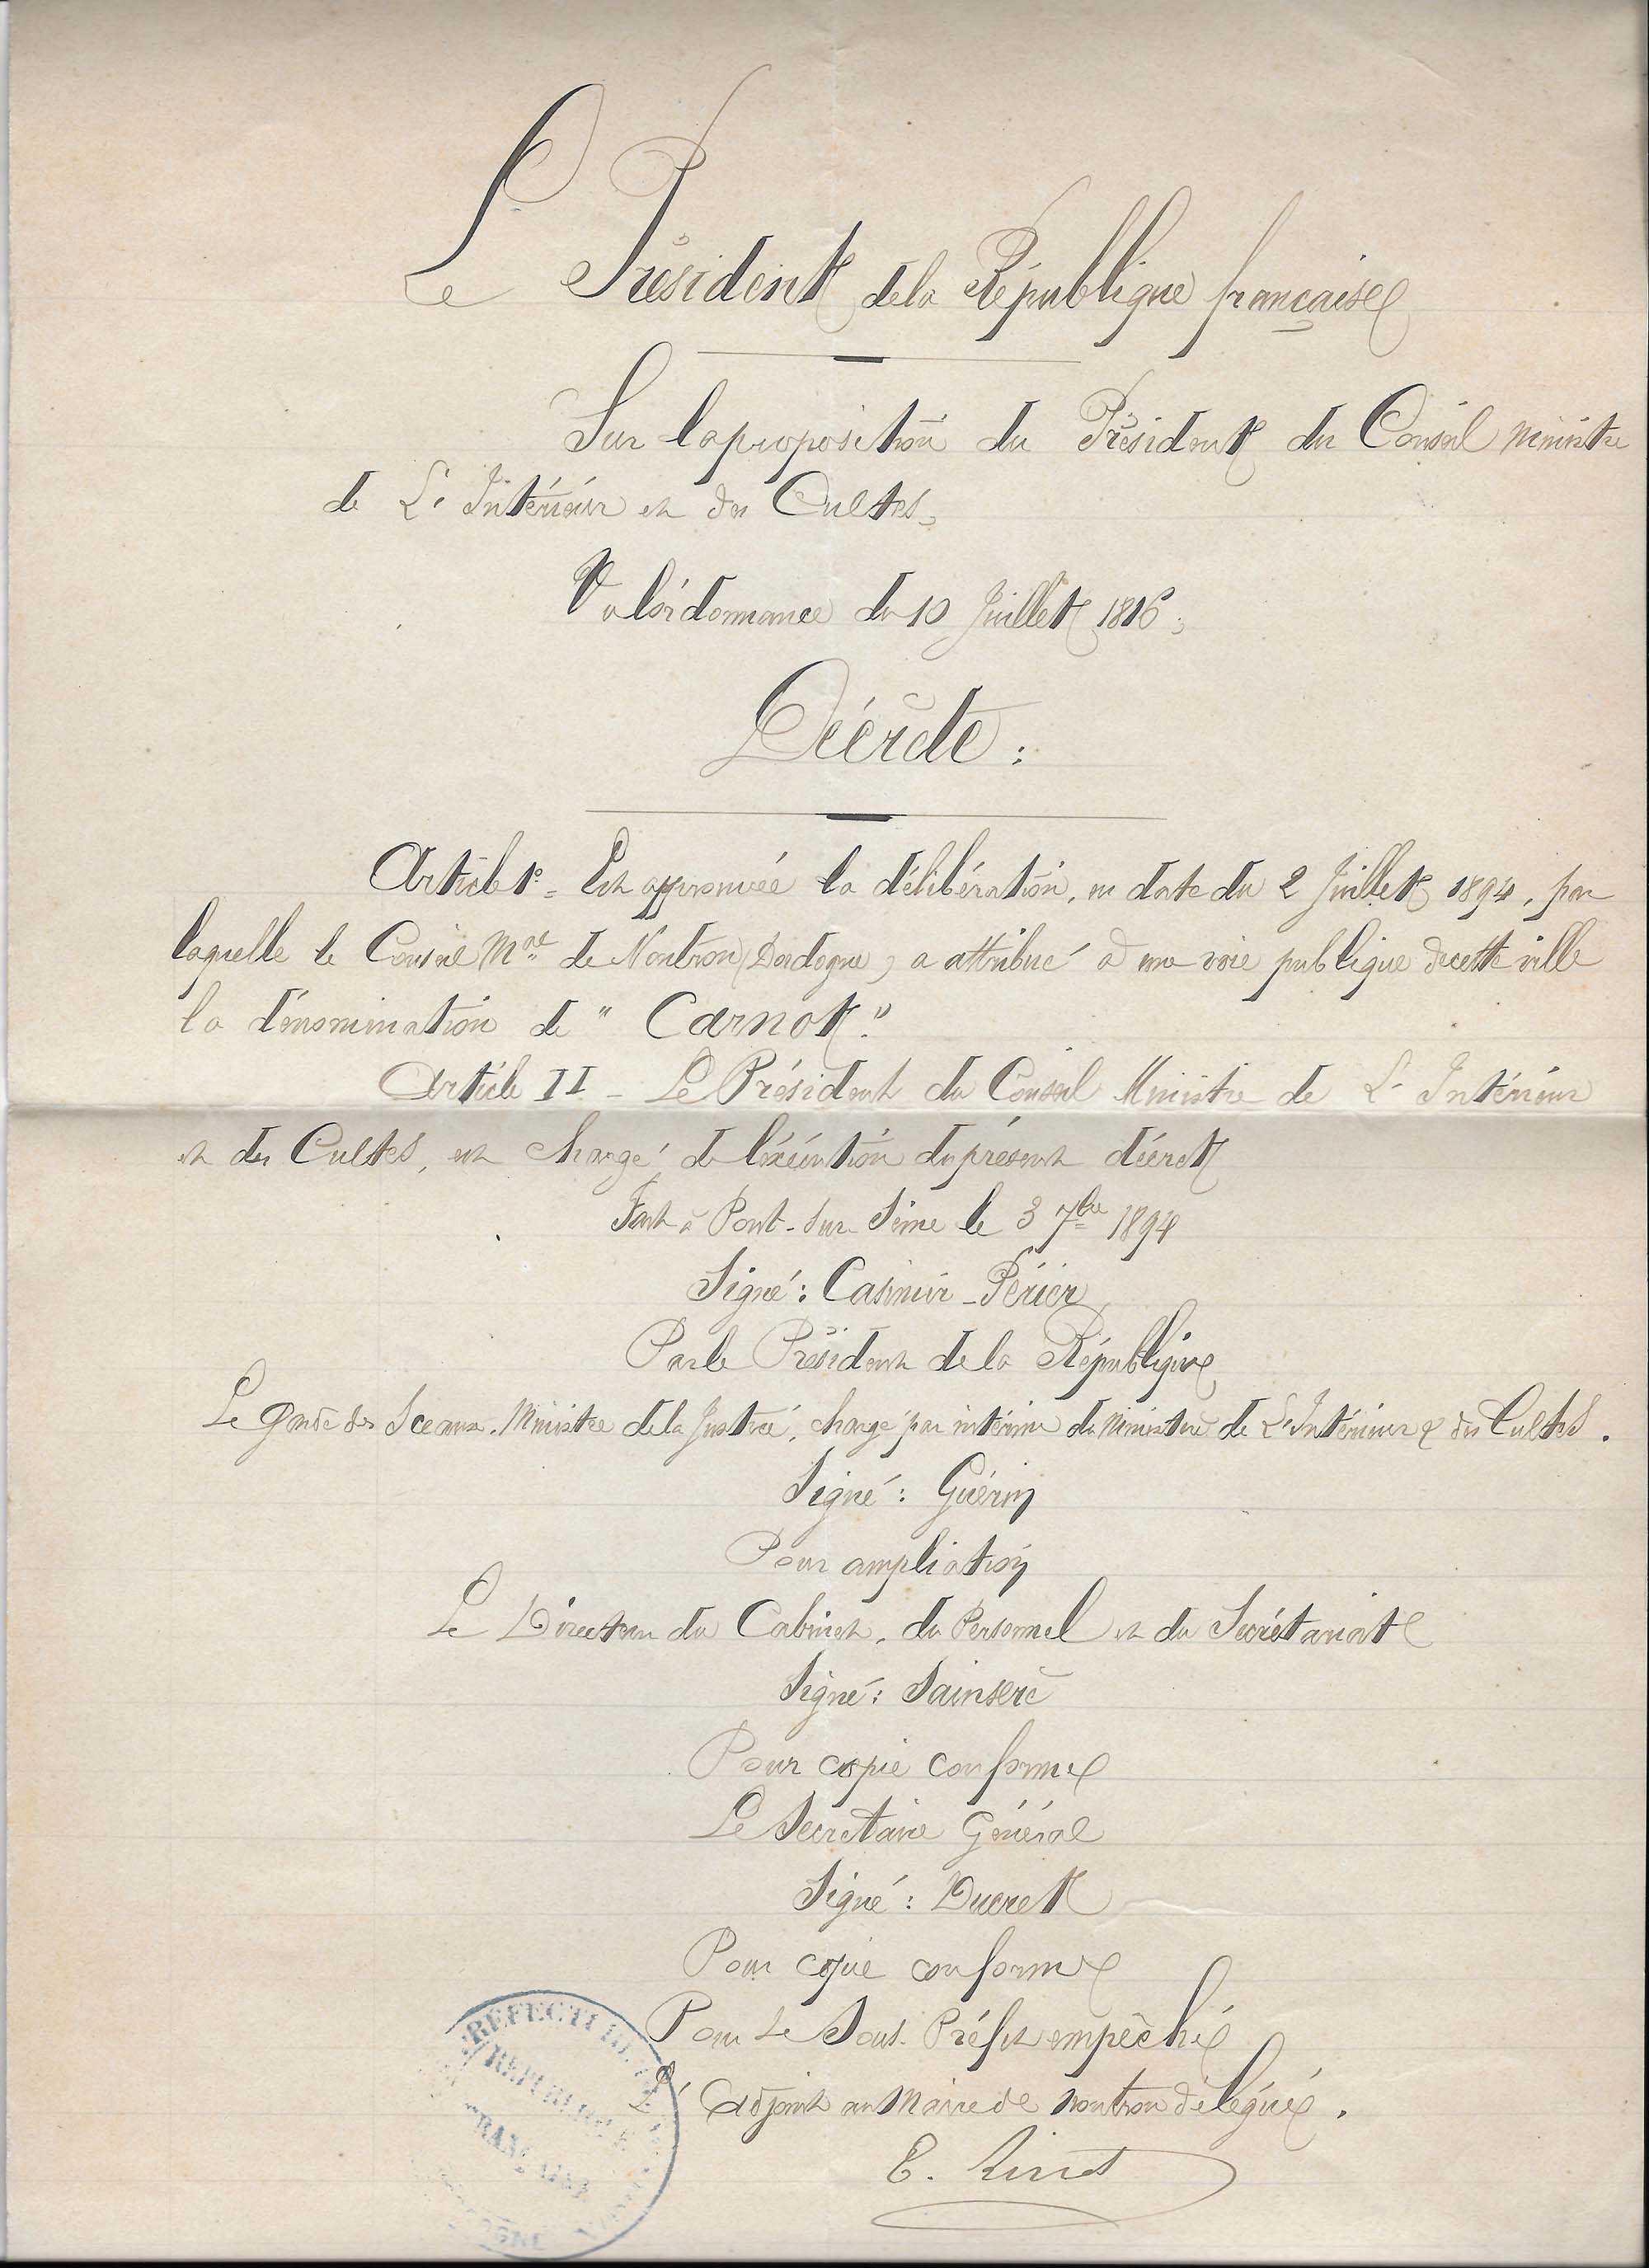 Le Président de la République française
Sur la proposition du Président du Conseil ministre
de L'Intérieur et des Cultes,
Vu l'ordonnance du 10 Juillet 1816;
Décrète:
Article 1o - Est approuvée la délibération, en date du 2 Juillet 1894, par
laquelle le Conseil Mal de Nontron (Dordogne) a attribué à une voie publique de cette ville
la dénomination de "Carnot".
Article II - Le Président du Conseil Ministre de L'Intérieur
et des Cultes, est chargé de l'éxécution du présent décret
Fait à Pont-sur-Seine le 3 7bre 1894
Signé: Casimir-Périer
Par le Président de la République
Le Garde des Sceaux, Ministre de la Justice, chargé par intérim du Ministère de L'Intérieur & des Cultes.
Signé: Guérin
Pour ampliation
Le Directeur du Cabinet, du Personnel et du Secrétariat
Signé: Sainsère
Pour copie conforme
Le Secrétaire Général
Signé: Ducret
Pour copie conforme
Pour Le Sous-Préfet empêché
L'Adjoint au Maire de Nontron délégué.
REPUBLIQUE
FRANÇAISE
E.